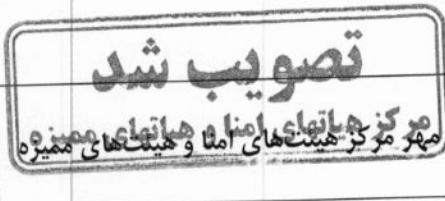 تصویب شد
مرکز هیاتهای امنا و هیاتهای ممیزه
مهر مرکز هیئت‌های امنا و هیئت‌های ممیزه